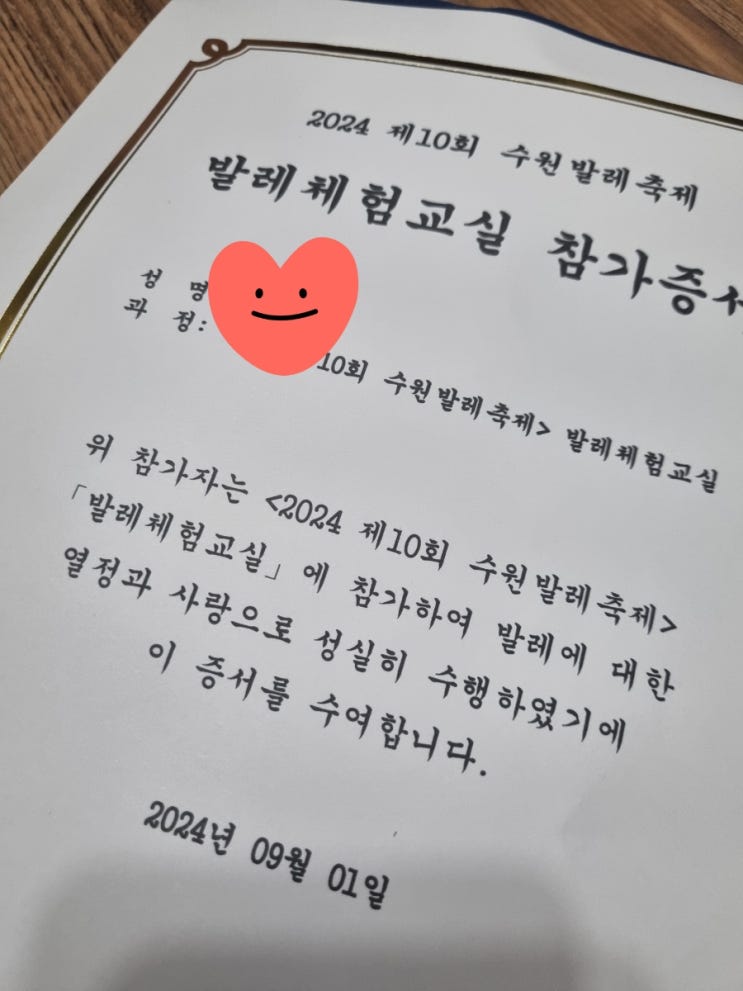 2024 제10회 수원발레축제
발레체험교실 참가증서
성 명
과 정:
10회 수원발레축제> 발레체험교실
위 참가자는 <2024 제10회 수원발레축제>
「발레체험교실」에 참가하여 발레에 대한
열정과 사랑으로 성실히 수행하였기에
이 증서를 수여합니다.
2024년 09월 01일